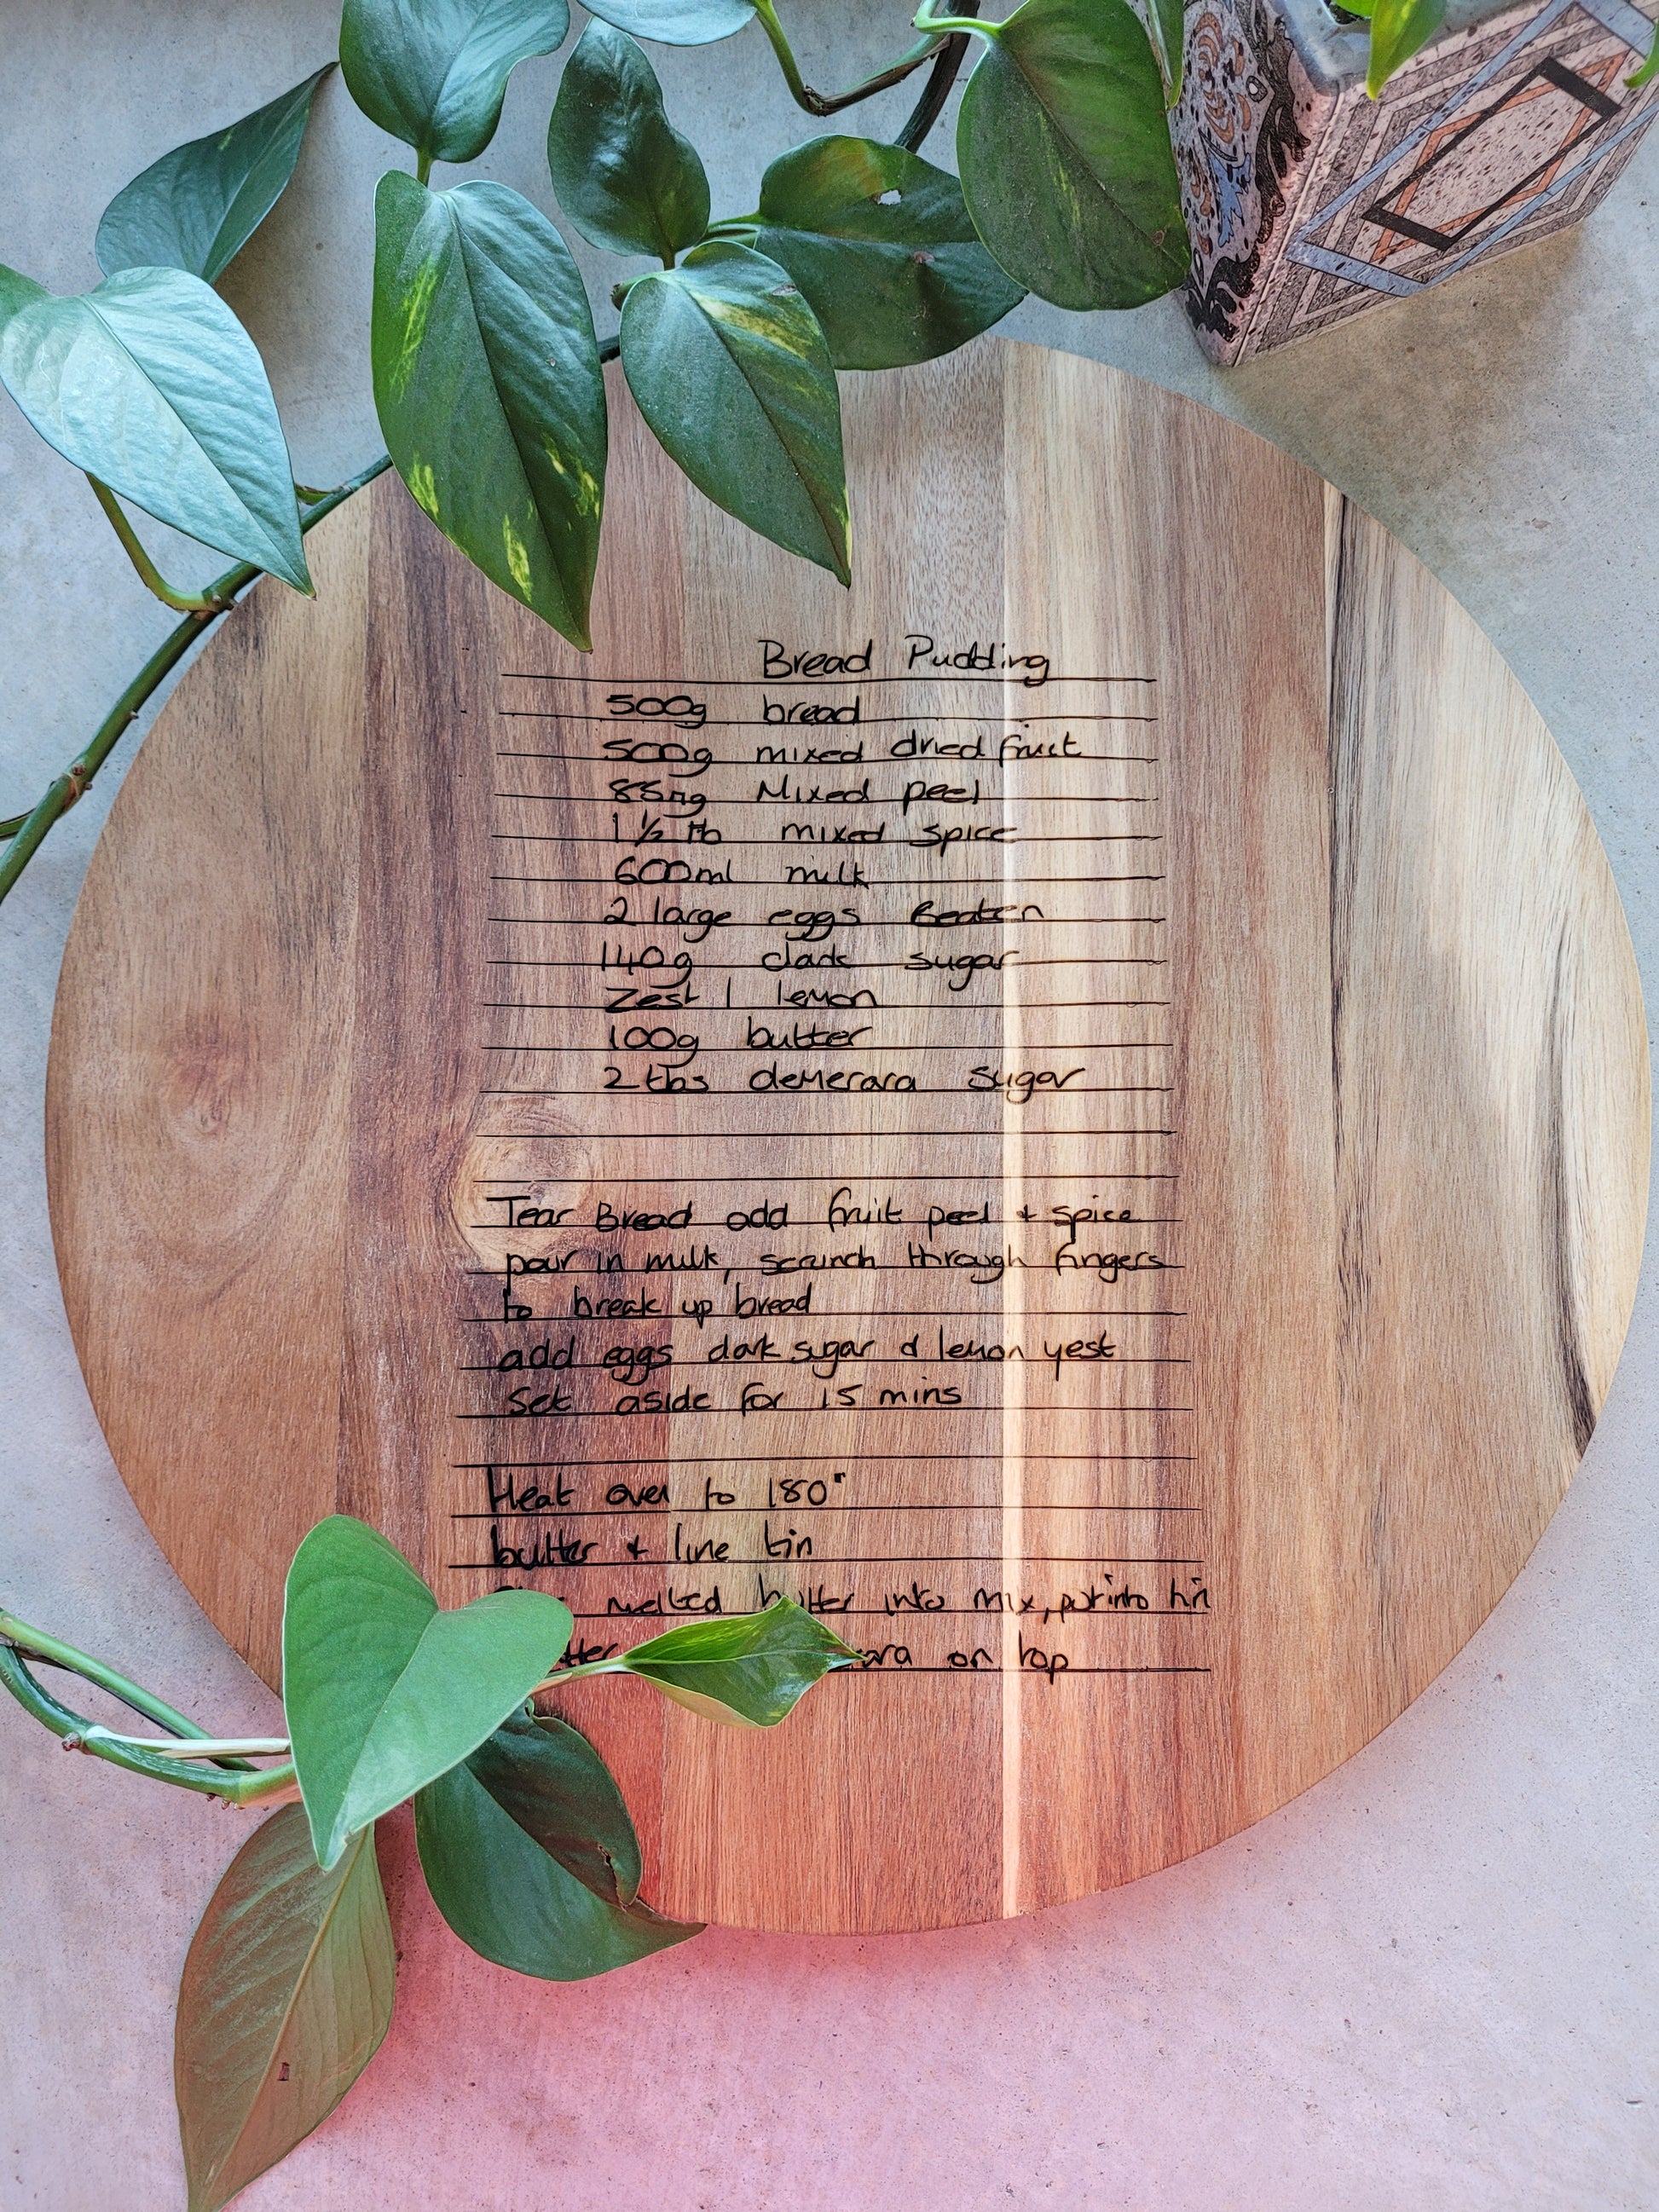 Bread Pudding
500g bread
500g mixed dried fruit
85g Mixed peel
1 ½ tb mixed spice
600ml milk
2 large eggs Beaten
140g dark sugar
Zest 1 lemon
100g butter
2 tbs demerara sugar
Tear Bread add fruit peel + spice
pour in milk, scrunch through fingers
to break up bread
add eggs dark sugar & lemon yest
Set aside for 15 mins
Heat oven to 180°
butter + line tin
melted butter into mix, put into tin
on top